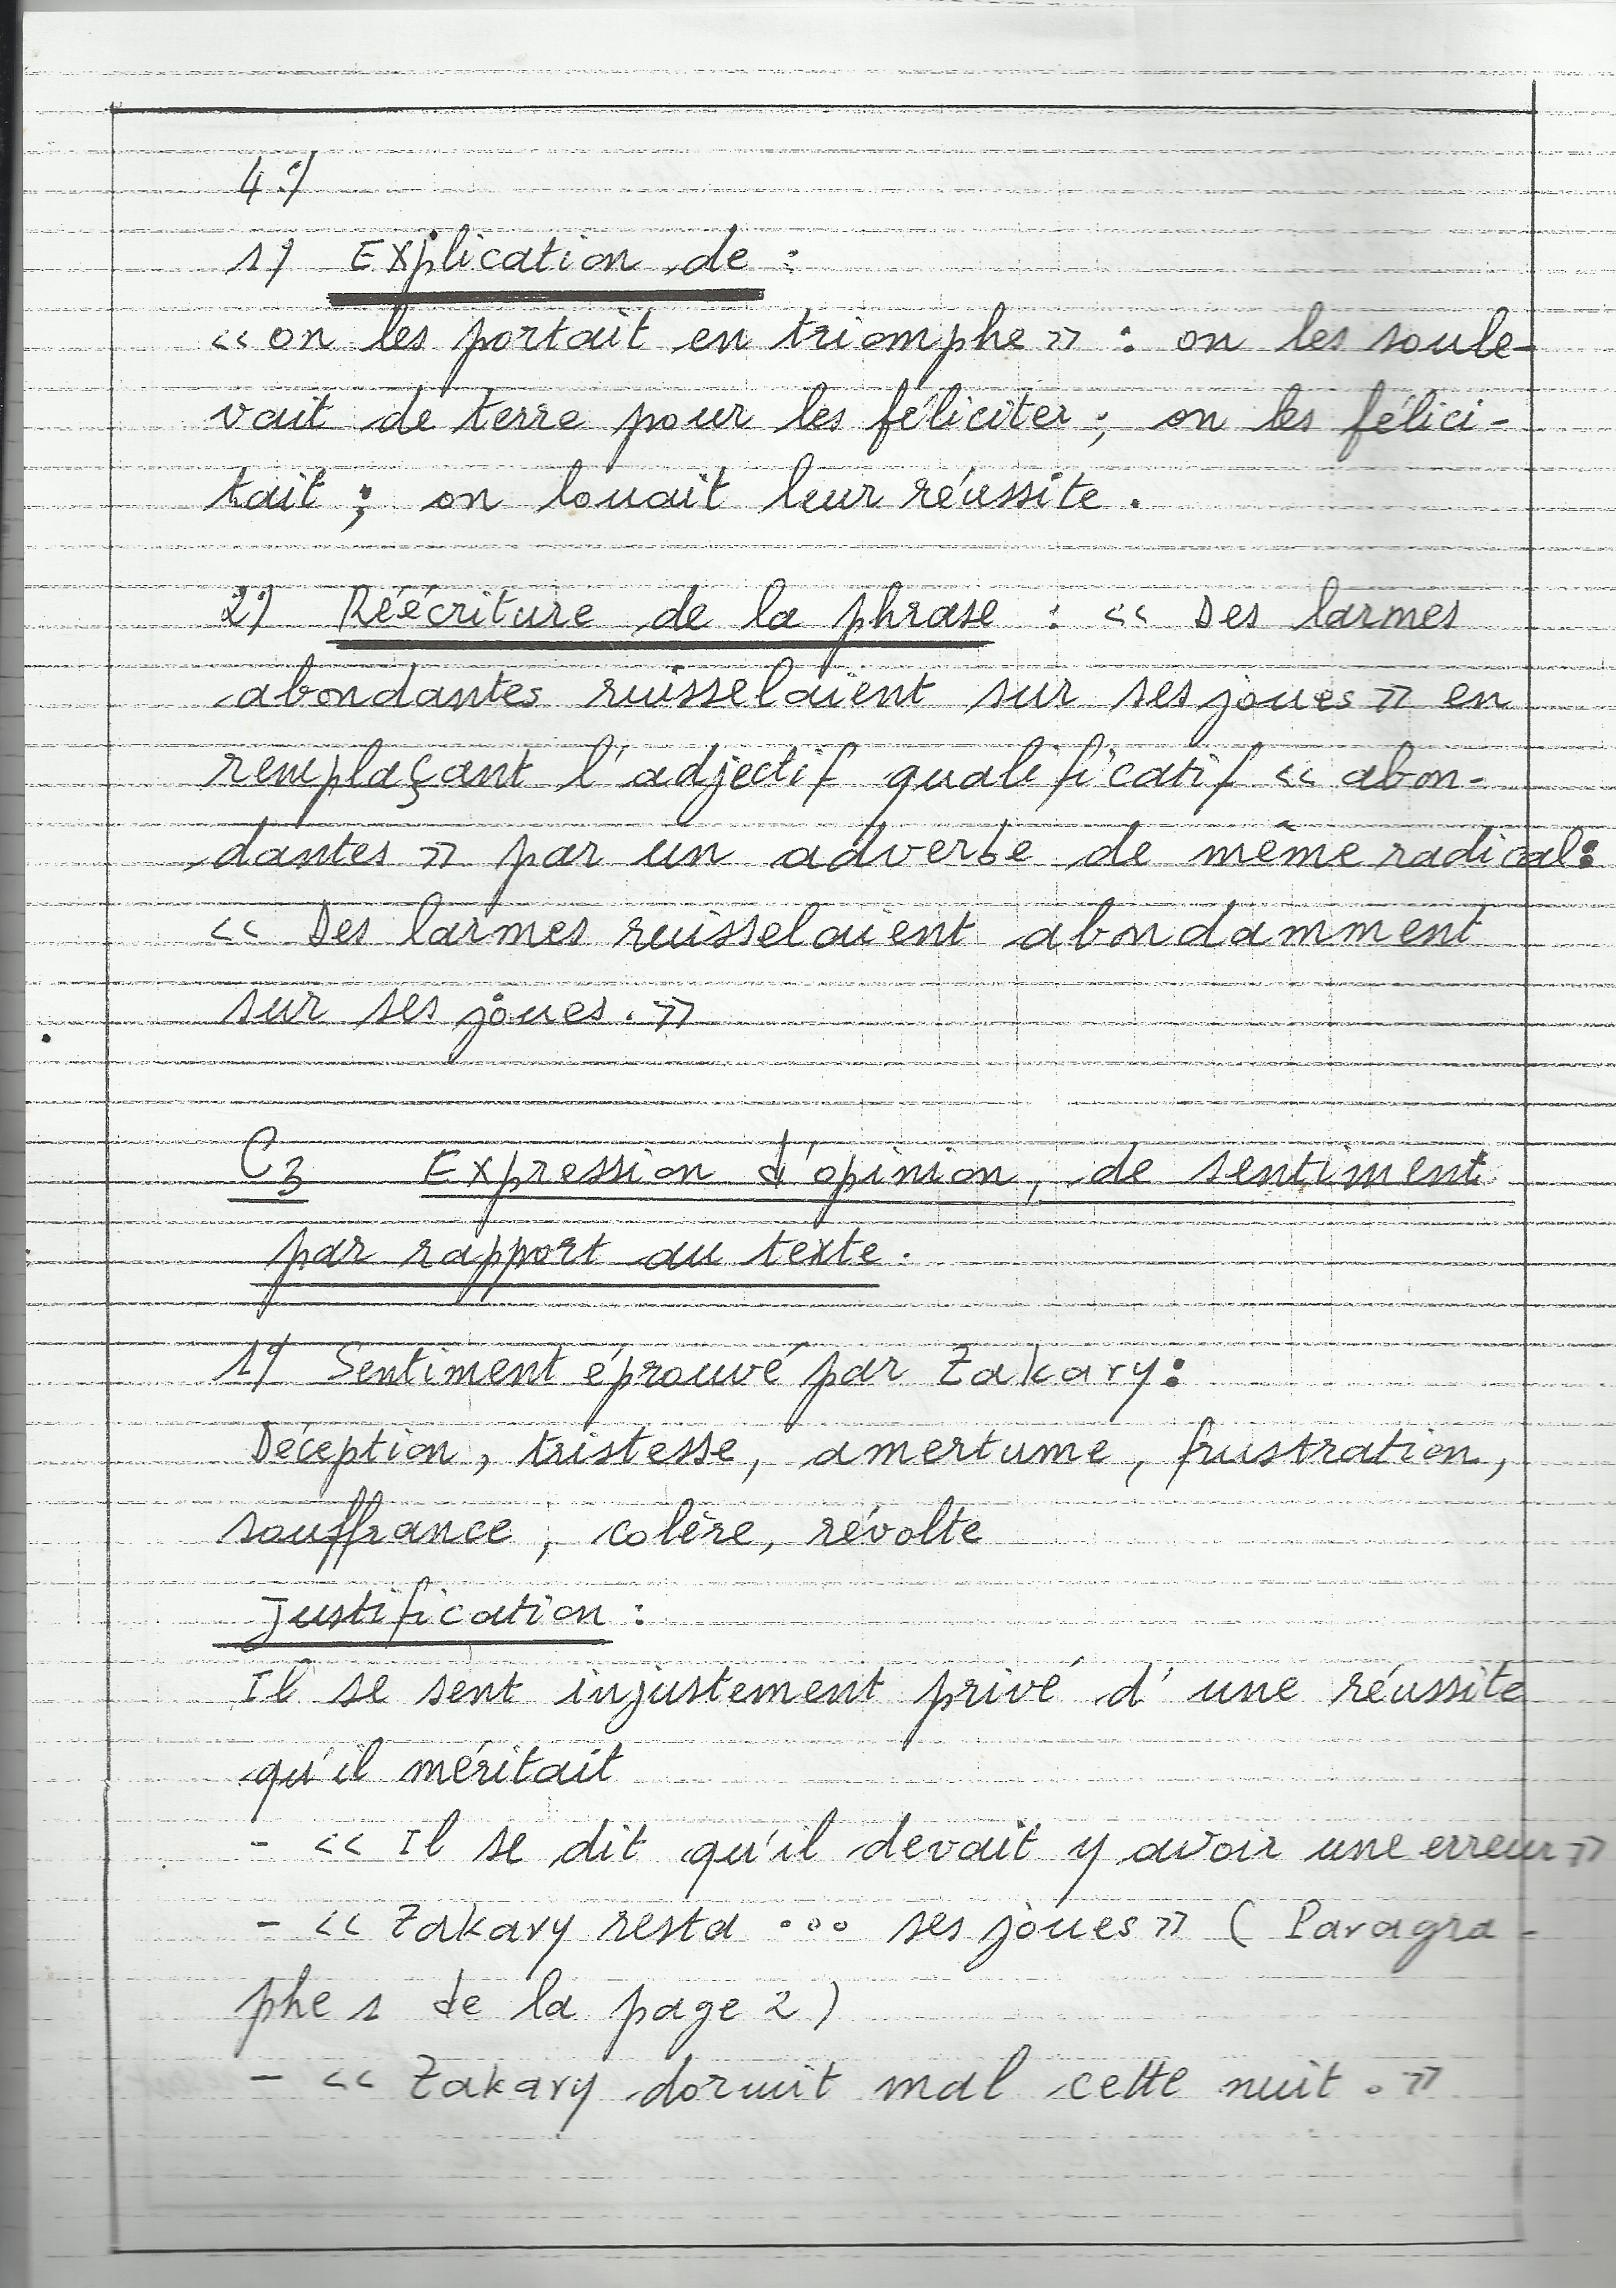 4°/
1°/ Explication de :
<< on les portait en triomphe >> : on les soule-
vait de terre pour les féliciter ; on les félici-
tait ; on louait leur réussite .
2°/ Réécriture de la phrase : << Des larmes
abondantes ruisselaient sur ses joues >> en
remplaçant l'adjectif qualificatif << abon-
dantes >> par un adverbe de même radical :
<< Des larmes ruisselaient abondamment
sur ses joues . >>
C3 Expression d'opinion, de sentiment
par rapport au texte .
1°/ Sentiment éprouvé par Zakary :
Déception, tristesse, amertume, frustration,
souffrance, colère, révolte
Justification :
Il se sent injustement privé d'une réussite
qu'il méritait
- << Il se dit qu'il devait y avoir une erreur >>
- << Zakary resta ... ses joues >> ( Paragra-
phe 1 de la page 2 )
- << Zakary dormit mal cette nuit . >>